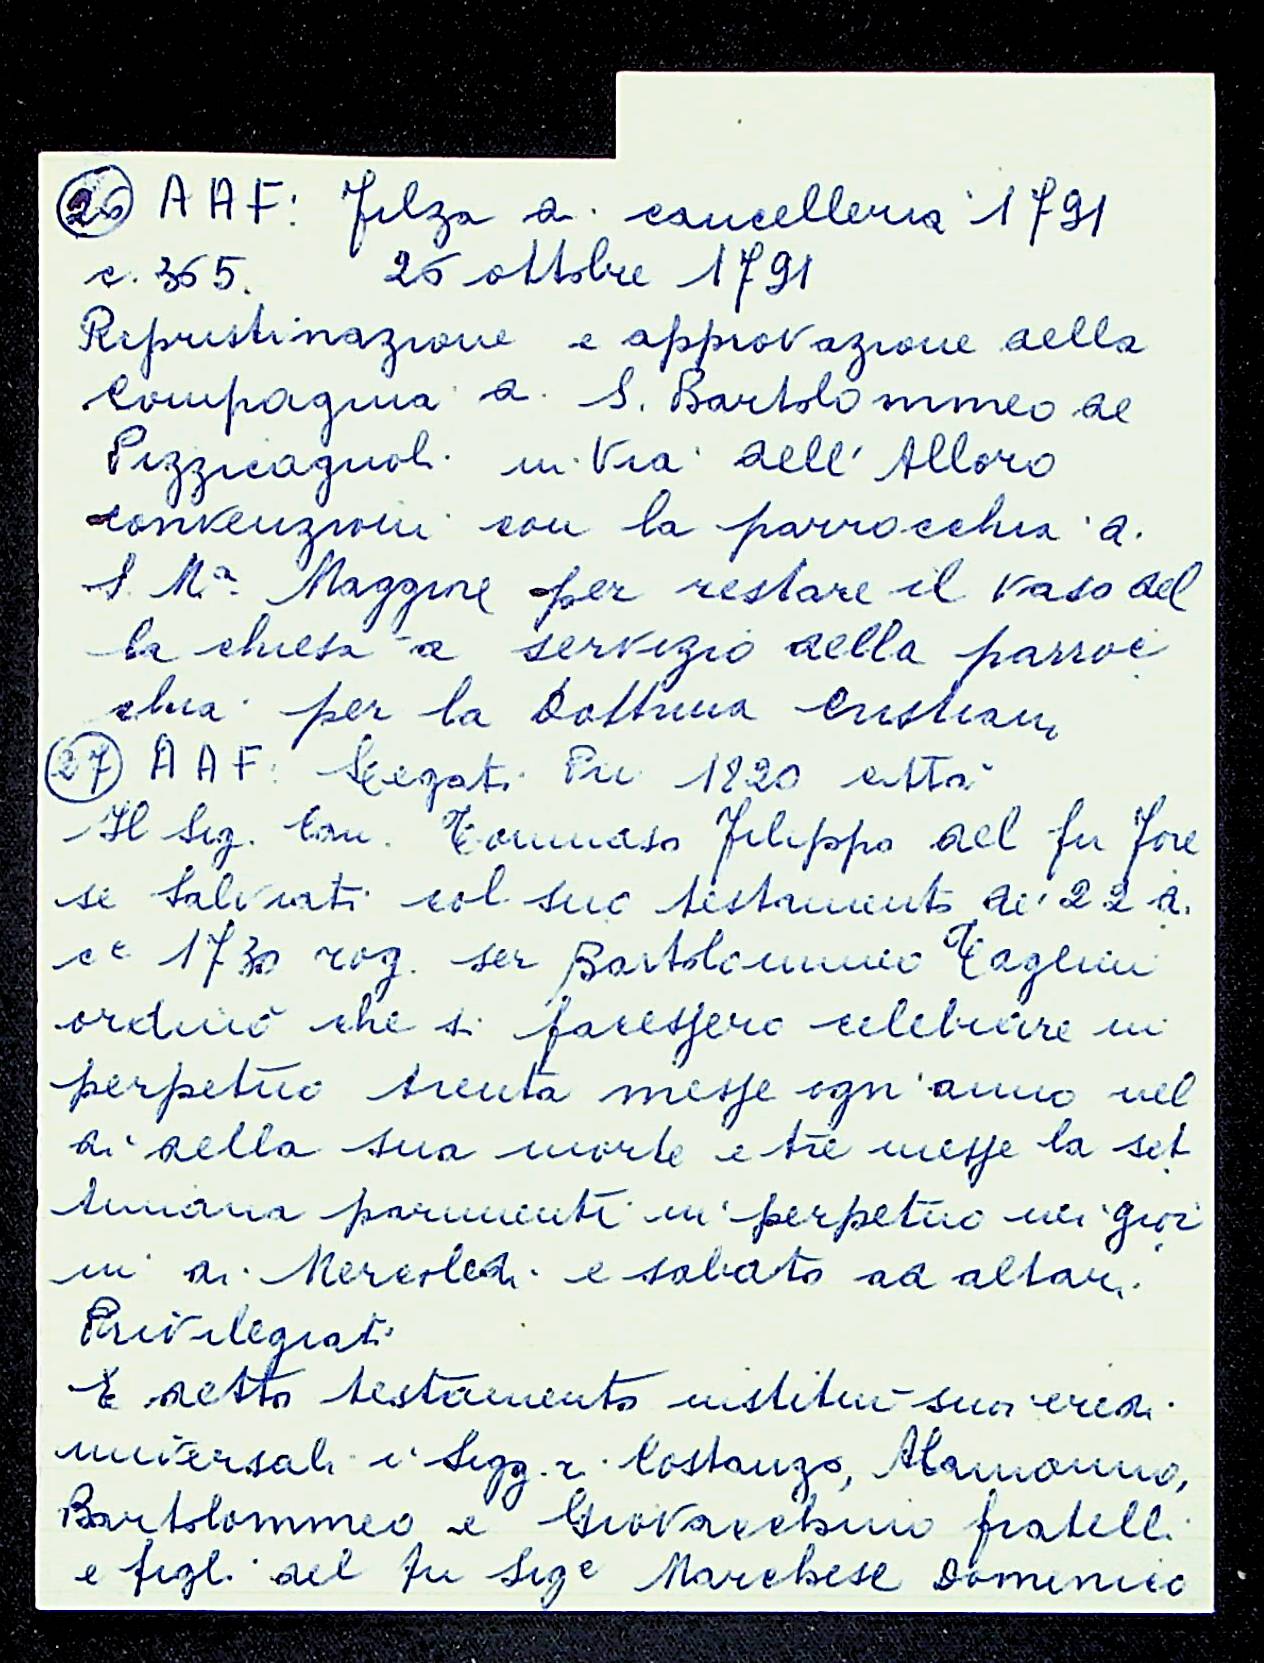 26 AAF: Filza di cancelleria 1791
c. 365. 26 ottobre 1791
Ripristinazione e approvazione della
Compagnia di S. Bartolommeo de
Pizzicagnoli in Via dell' Alloro
convenzioni con la parrocchia di
S. Mª Maggiore per restare il vaso del
la chiesa a servizio della parroc
chia per la Dottrina Cristiana
27 AAF: Legati Pii 1820 città
Il Sig. Can. Tommaso Filippo del fu
se Salviati col suo testamento de' 22 di
ce 1730 rog. ser Bartolommeo Taglini
ordinò che si facessero celebrare in
perpetuo trenta messe ogn'anno nel
dì della sua morte e tre messe la set
timana parimenti in perpetuo nei gior
ni di Mercoledì e sabato ad altari
Privilegiati
E detto testamento instituì suoi eredi
universali i Sigg.ri Costanzo, Alamanno,
Bartolommeo e Giovacchino fratelli
e figli del fu Sige Marchese Domenico